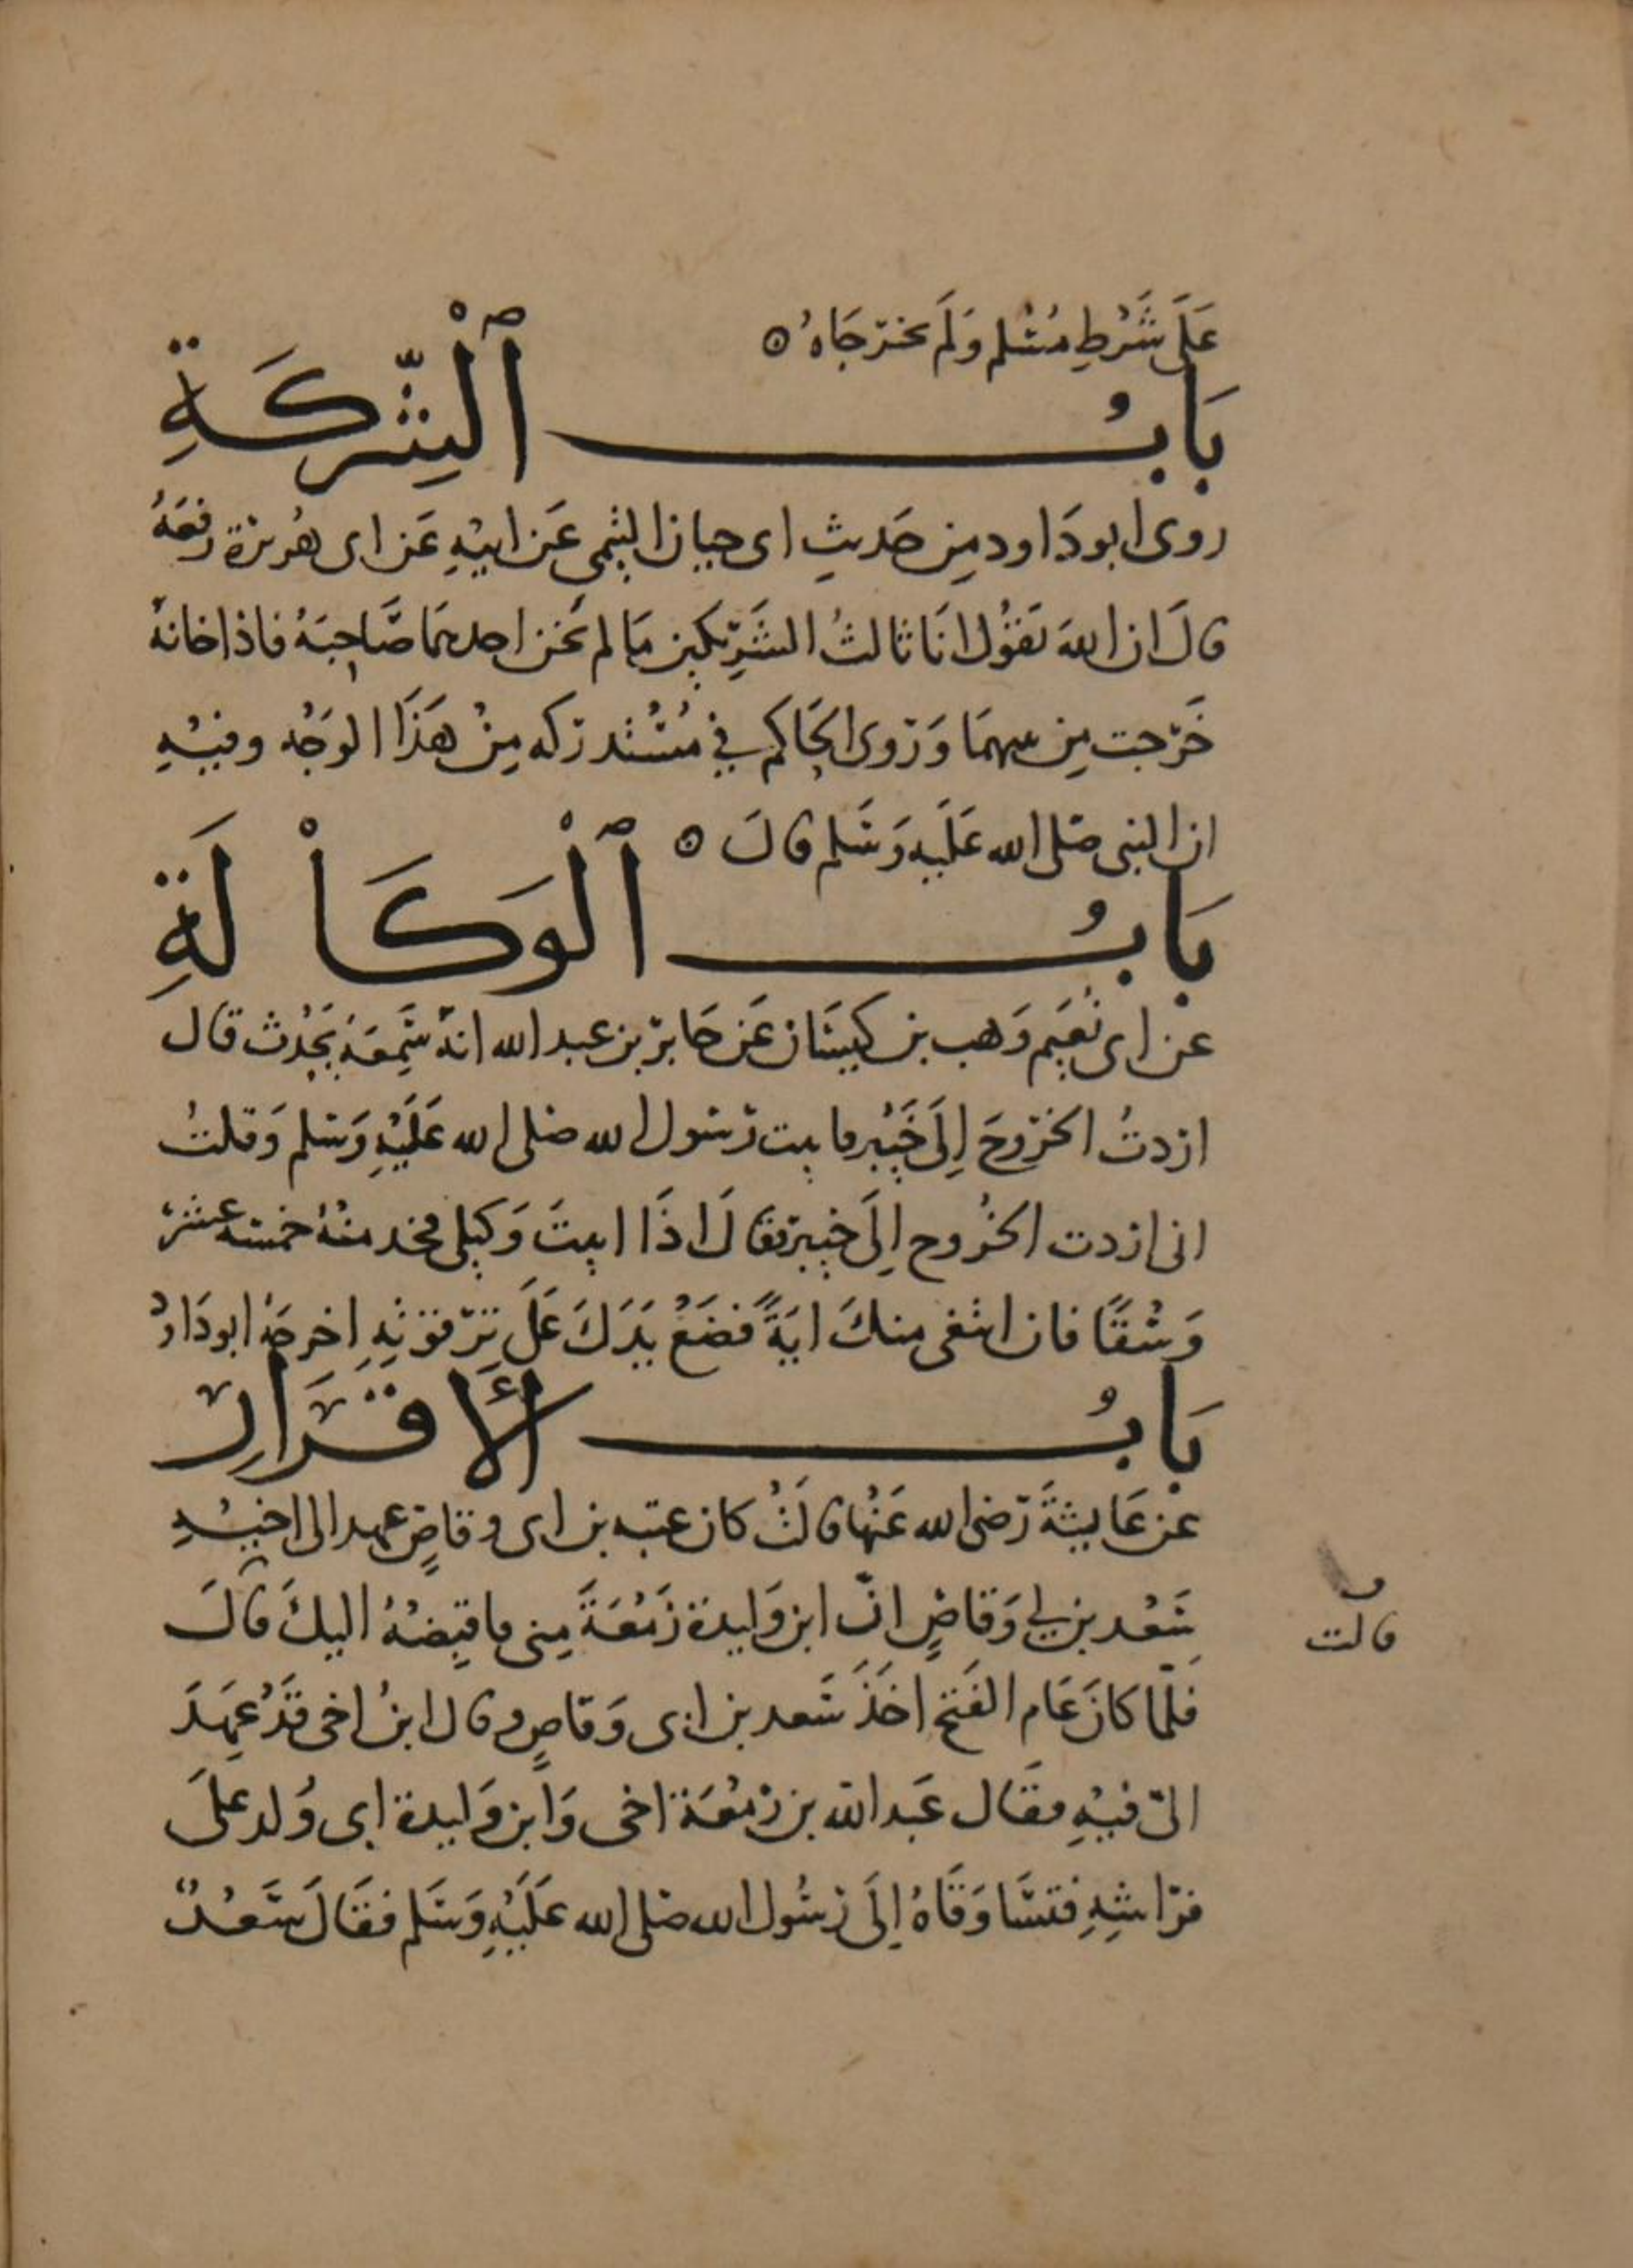 عَلَى شَرْطِ مُسْلم وَلَم يخرّجَاهُ ه
بَابُ ٱلْشِّرْكَةِ
روى ابو دَاود مِن حَديثِ ابى حيان التيمى عَن ابيْهِ عَن ابى هُريرْة رفعَهُ
قالَ ان اللهَ يَقُوْل انَا ثالثُ الشَرِّيكين مَا لم يَخن احدهمَا صَّاحِبَهُ فاذا خانهُ
خَرّجت مِن بينهمَا وَرَوى الحَاكم في مُسْتْدرَكه مِنْ هَذَا الوَجْه وفيْهِ
ان النبى صَلى الله عَلَيهِ وَسَلم قالَ ه
بَابُ ٱلْوَكَاْلَةِ
عن ابى نُعَيم وَهب بن كَيسَان عَن جَابرّ بن عبد الله انهّ سَّمِعَهُ يَحْدث قال
ارَدتُ الخرّوجَ اِلَى خَيْبر فاتيت رَسُول الله صَلى الله عَلَيْهِ وَسَلم وَقلتُ
انى اردت الخُروج اِلَى خيبرّ فقالَ اذَا اتيتَ وَكيلى فخد منْهُ خمسَه عشرّ
وَسْقًا فان ابتغى منكَ ايَةً فضَعْ يَدَكَ عَلَى تِرّقوَتِهِ اخرجَهُ ابو دَاودْ
بَابُ الأقرَارِ
عن عَايشَةَ رَّضى الله عَنْها قالَتْ كان عتبه بن ابى وقاصٍ عهد الى اخيْهِ
سَعْد بن ابي وَقاصٍ انّ ابن وَليدة زَمْعَةَ مِنى فاقبِضْهُ اليكَ قالَ
قالت
فلمّا كانَ عَام الفَتح اخَذَ سَعد بن ابى وَقاصٍ وقال ابنُ اخى قَدْ عَهِدَ
الىّ فيْهِ فقَال عَبد الله بن زمْعَة اخى وَابن وَليدة ابى وُلد عَلَى
فرّاشِهِ فتسَّاوَقَاهُ اِلَى رَسُول الله صَلى الله عَلَيْهِ وَسَلم فقَالَ سَعْدٌ